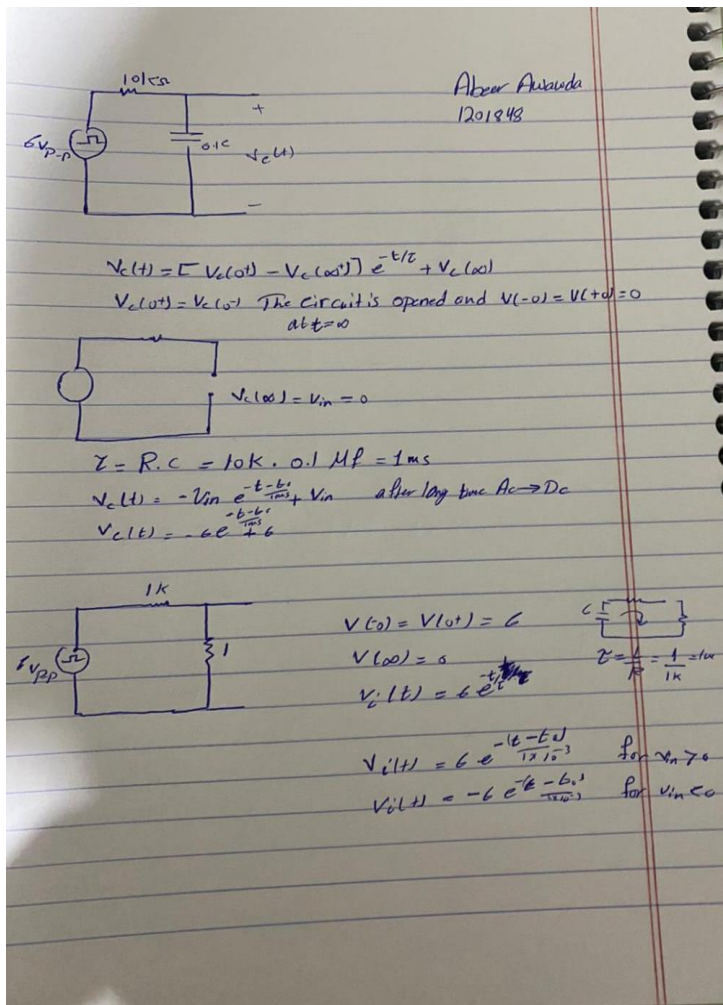 Abeer Awawda
1201848
10kΩ
6Vp-p
0.1C
+
Vc(t)
-
Vc(t) = [Vc(0+) - Vc(∞+)] e^-t/τ + Vc(∞)
Vc(0+) = Vc(0-) The circuit is opened and V(-0) = V(+0) = 0
at t=∞
Vc(∞) = Vin = 0
τ = R.C = 10k . 0.1 Mf = 1ms
Vc(t) = -Vin e^-t-t0/1ms + Vin after long time Ac→Dc
Vc(t) = -6e^-t-t0/1ms + 6
1K
6Vpp
1
V(-0) = V(0+) = 6
V(∞) = 0
τ = L/R = 1/1k
Vi(t) = 6 e^-(t-t0)/1x10^-3 for Vin>0
Vi(t) = -6 e^-(t-t0)/1x10^-3 for Vin<0